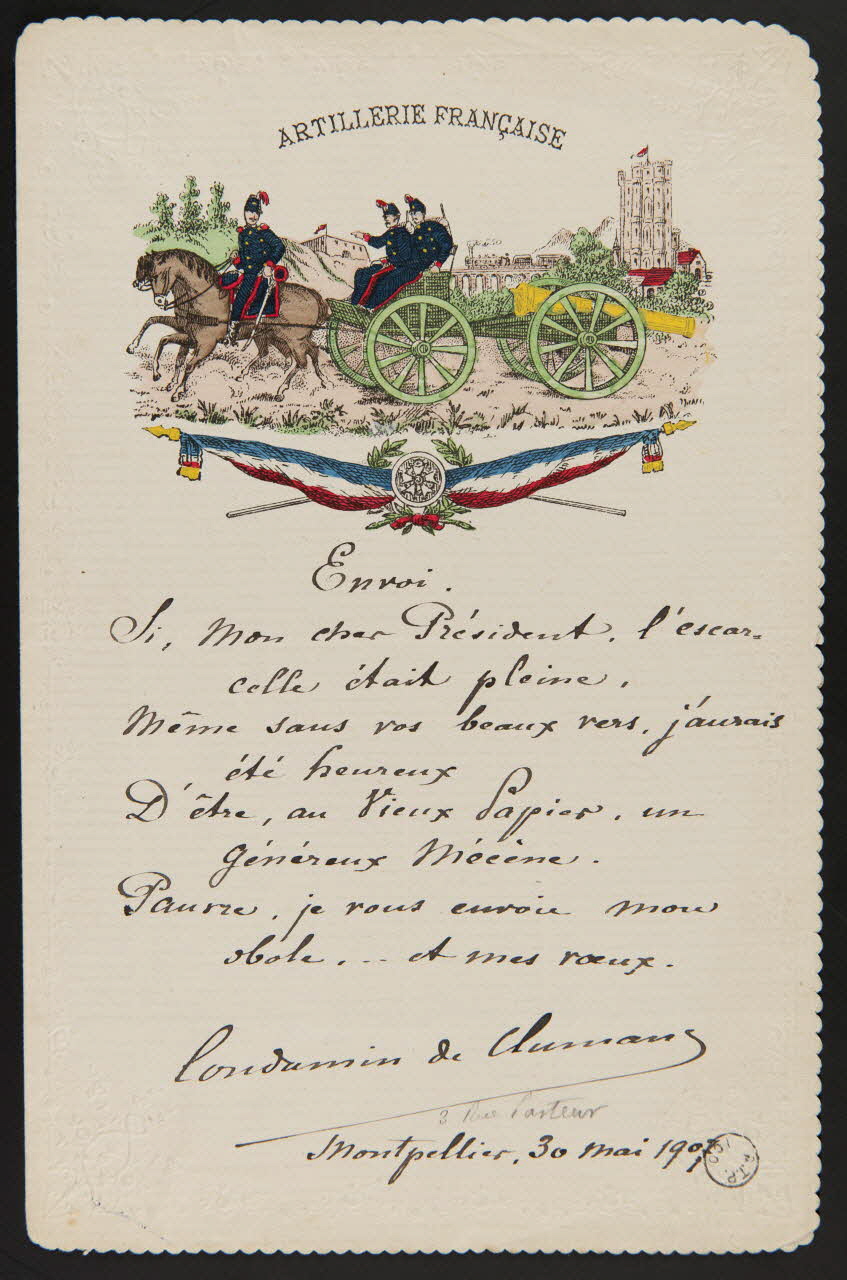 ARTILLERIE FRANÇAISE
Envoi.
Si, Mon cher Président, l'escar=
celle était pleine,
Même sans vos beaux vers, j'aurais
été heureux
D'être, au Vieux Papier, un
généreux Mécène.
Pauvre, je vous envoie mon
obole... et mes vœux.
Condamin de Clumanc
3 Rue Pasteur
Montpellier, 30 mai 190